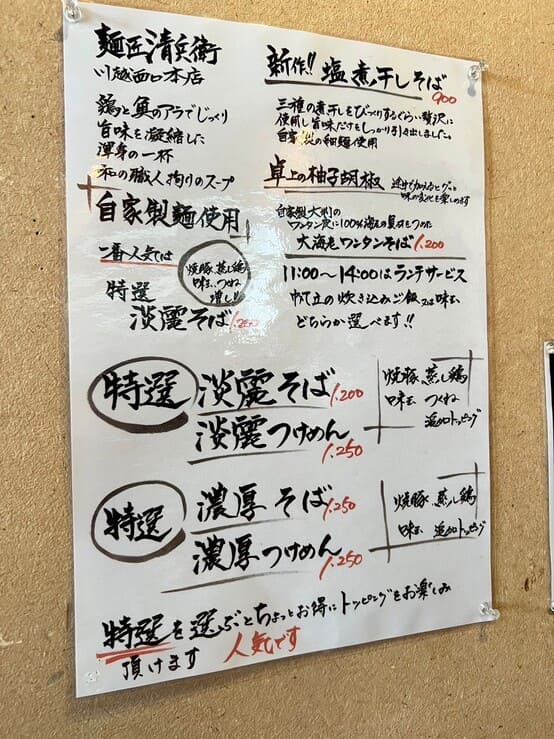 麺匠清兵衛
川越西口本店
鶏と魚のアラでじっくり
旨味を凝縮した
渾身の一杯
和の職人拘りのスープ
自家製麺使用
一番人気は
特選
淡麗そば
焼豚、蒸し鶏
味玉、つくね
増し!!
新作!! 塩煮干しそば
900
三種の煮干しをびっくりするぐらい贅沢に
使用し旨味だけをしっかり引き出しました。
自家製の細麺使用
卓上の柚子胡椒
自家製大判の
ワンタン皮に100%海老の具材をつめた
大海老ワンタンそば 1.200
11:00〜14:00はランチサービス
帆立の炊き込みご飯又は味玉
どちらか選べます!!
特選 淡麗そば 1.200
淡麗つけめん
1.250
焼豚、蒸し鶏
味玉 つくね
追加トッピング
特選 濃厚そば 1.250
濃厚つけめん 1.250
焼豚、蒸し鶏
味玉 追加トッピング
特選を選ぶとちょっとお得にトッピングをお楽しみ
頂けます 人気です